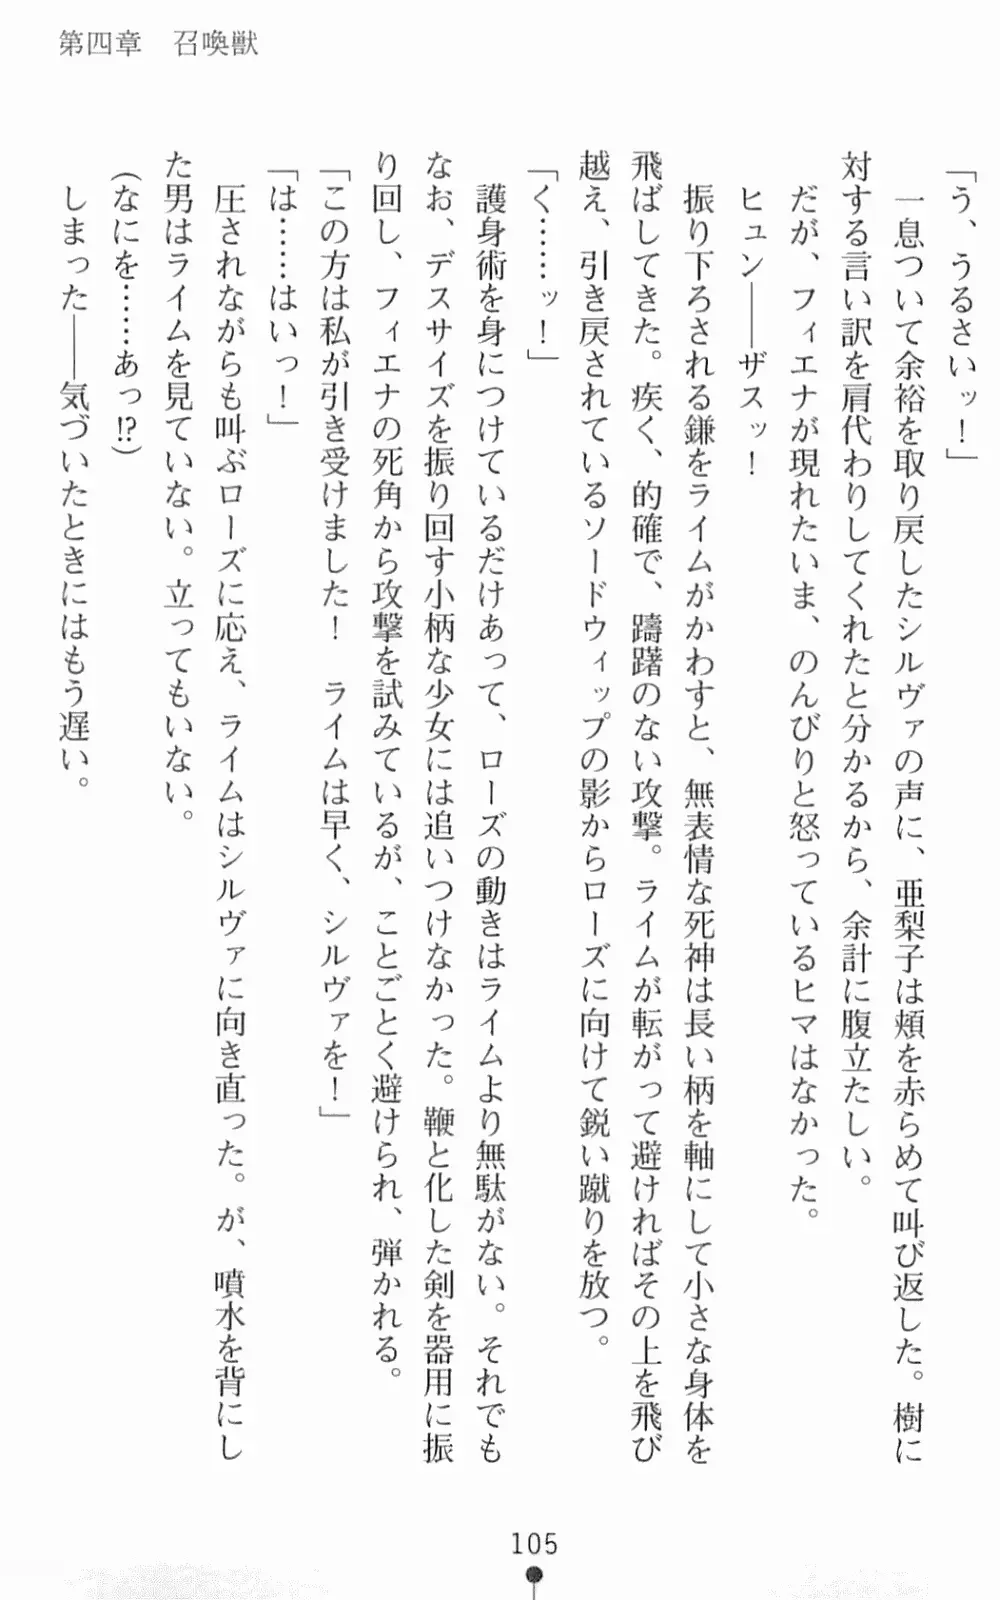 第四章　召喚獣
「う、うるさいッ！」
　一息ついて余裕を取り戻したシルヴァの声に、亜梨子は頬を赤らめて叫び返した。樹に
対する言い訳を肩代わりしてくれたと分かるから、余計に腹立たしい。
　だが、フィエナが現れたいま、のんびりと怒っているヒマはなかった。
　ヒュン――ザスッ！
　振り下ろされる鎌をライムがかわすと、無表情な死神は長い柄を軸にして小さな身体を
飛ばしてきた。疾く、的確で、躊躇のない攻撃。ライムが転がって避ければその上を飛び
越え、引き戻されているソードウィップの影からローズに向けて鋭い蹴りを放つ。
「く……ッ！」
　護身術を身につけているだけあって、ローズの動きはライムより無駄がない。それでも
なお、デスサイズを振り回す小柄な少女には追いつけなかった。鞭と化した剣を器用に振
り回し、フィエナの死角から攻撃を試みているが、ことごとく避けられ、弾かれる。
「この方は私が引き受けました！　ライムは早く、シルヴァを！」
「は……はいっ！」
　圧されながらも叫ぶローズに応え、ライムはシルヴァに向き直った。が、噴水を背にし
た男はライムを見ていない。立ってもいない。
（なにを……あっ!?）
　しまった――気づいたときにはもう遅い。
105